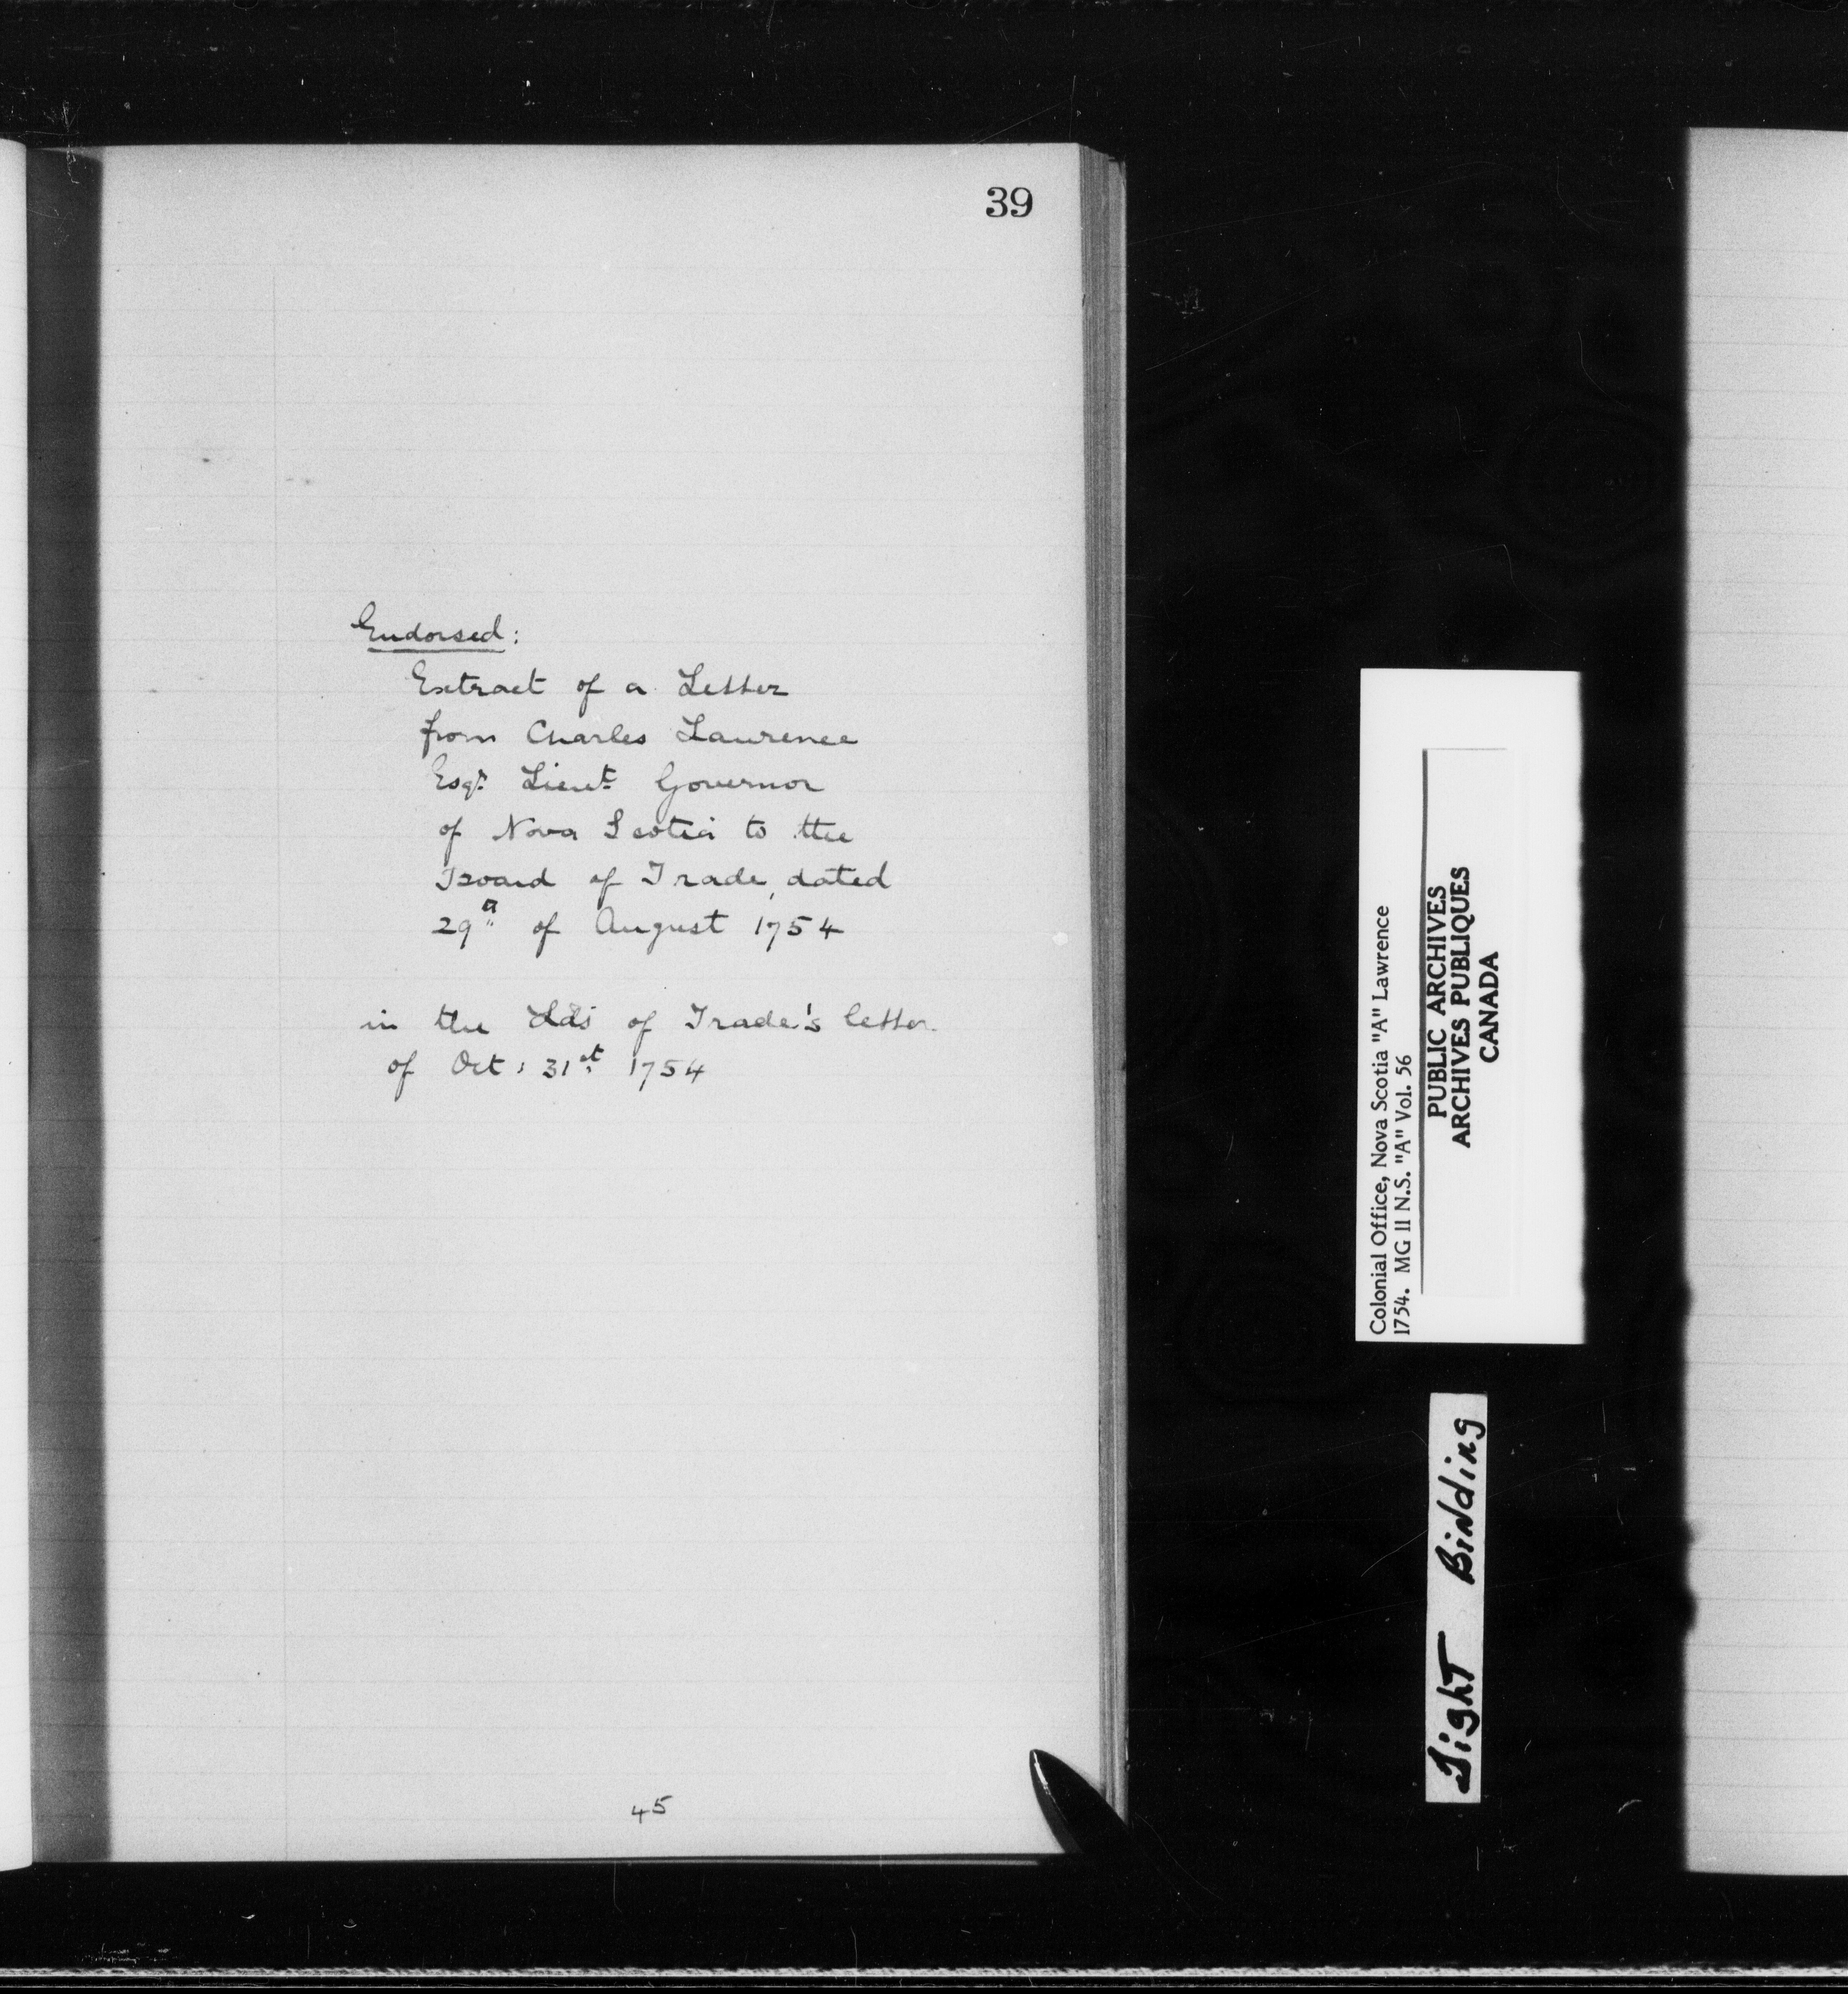 39
Endorsed:
Extract of a Letter
from Charles Laurence
Esqr. Lieut. Governor
of Nova Scotia to the
Board of Trade, dated
29th of August 1754
in the Lds of Trade's letter
of Oct: 31st 1754
45
Colonial Office, Nova Scotia "A" Lawrence
1754. MG 11 N.S. "A" Vol. 56
PUBLIC ARCHIVES
ARCHIVES PUBLIQUES
CANADA
Tight Binding